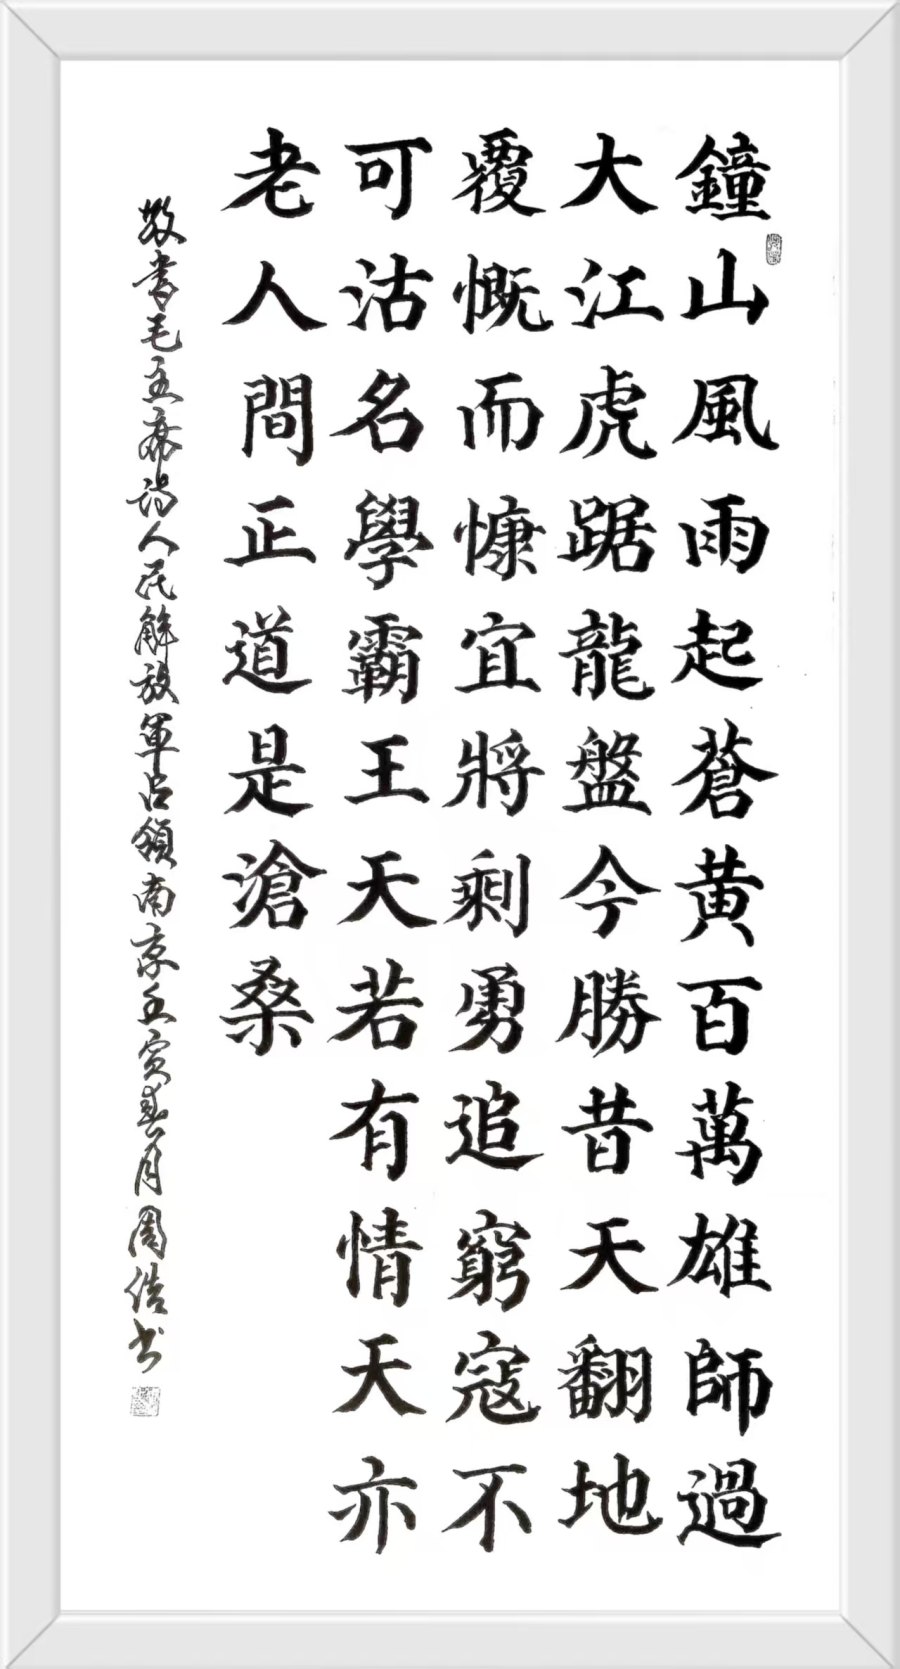 鐘山風雨起蒼黃百萬雄師過
大江虎踞龍盤今勝昔天翻地
覆慨而慷宜將剩勇追窮寇不
可沽名學霸王天若有情天亦
老人間正道是滄桑
敬書毛主席詩人民解放軍占領南京壬寅春月周浩书